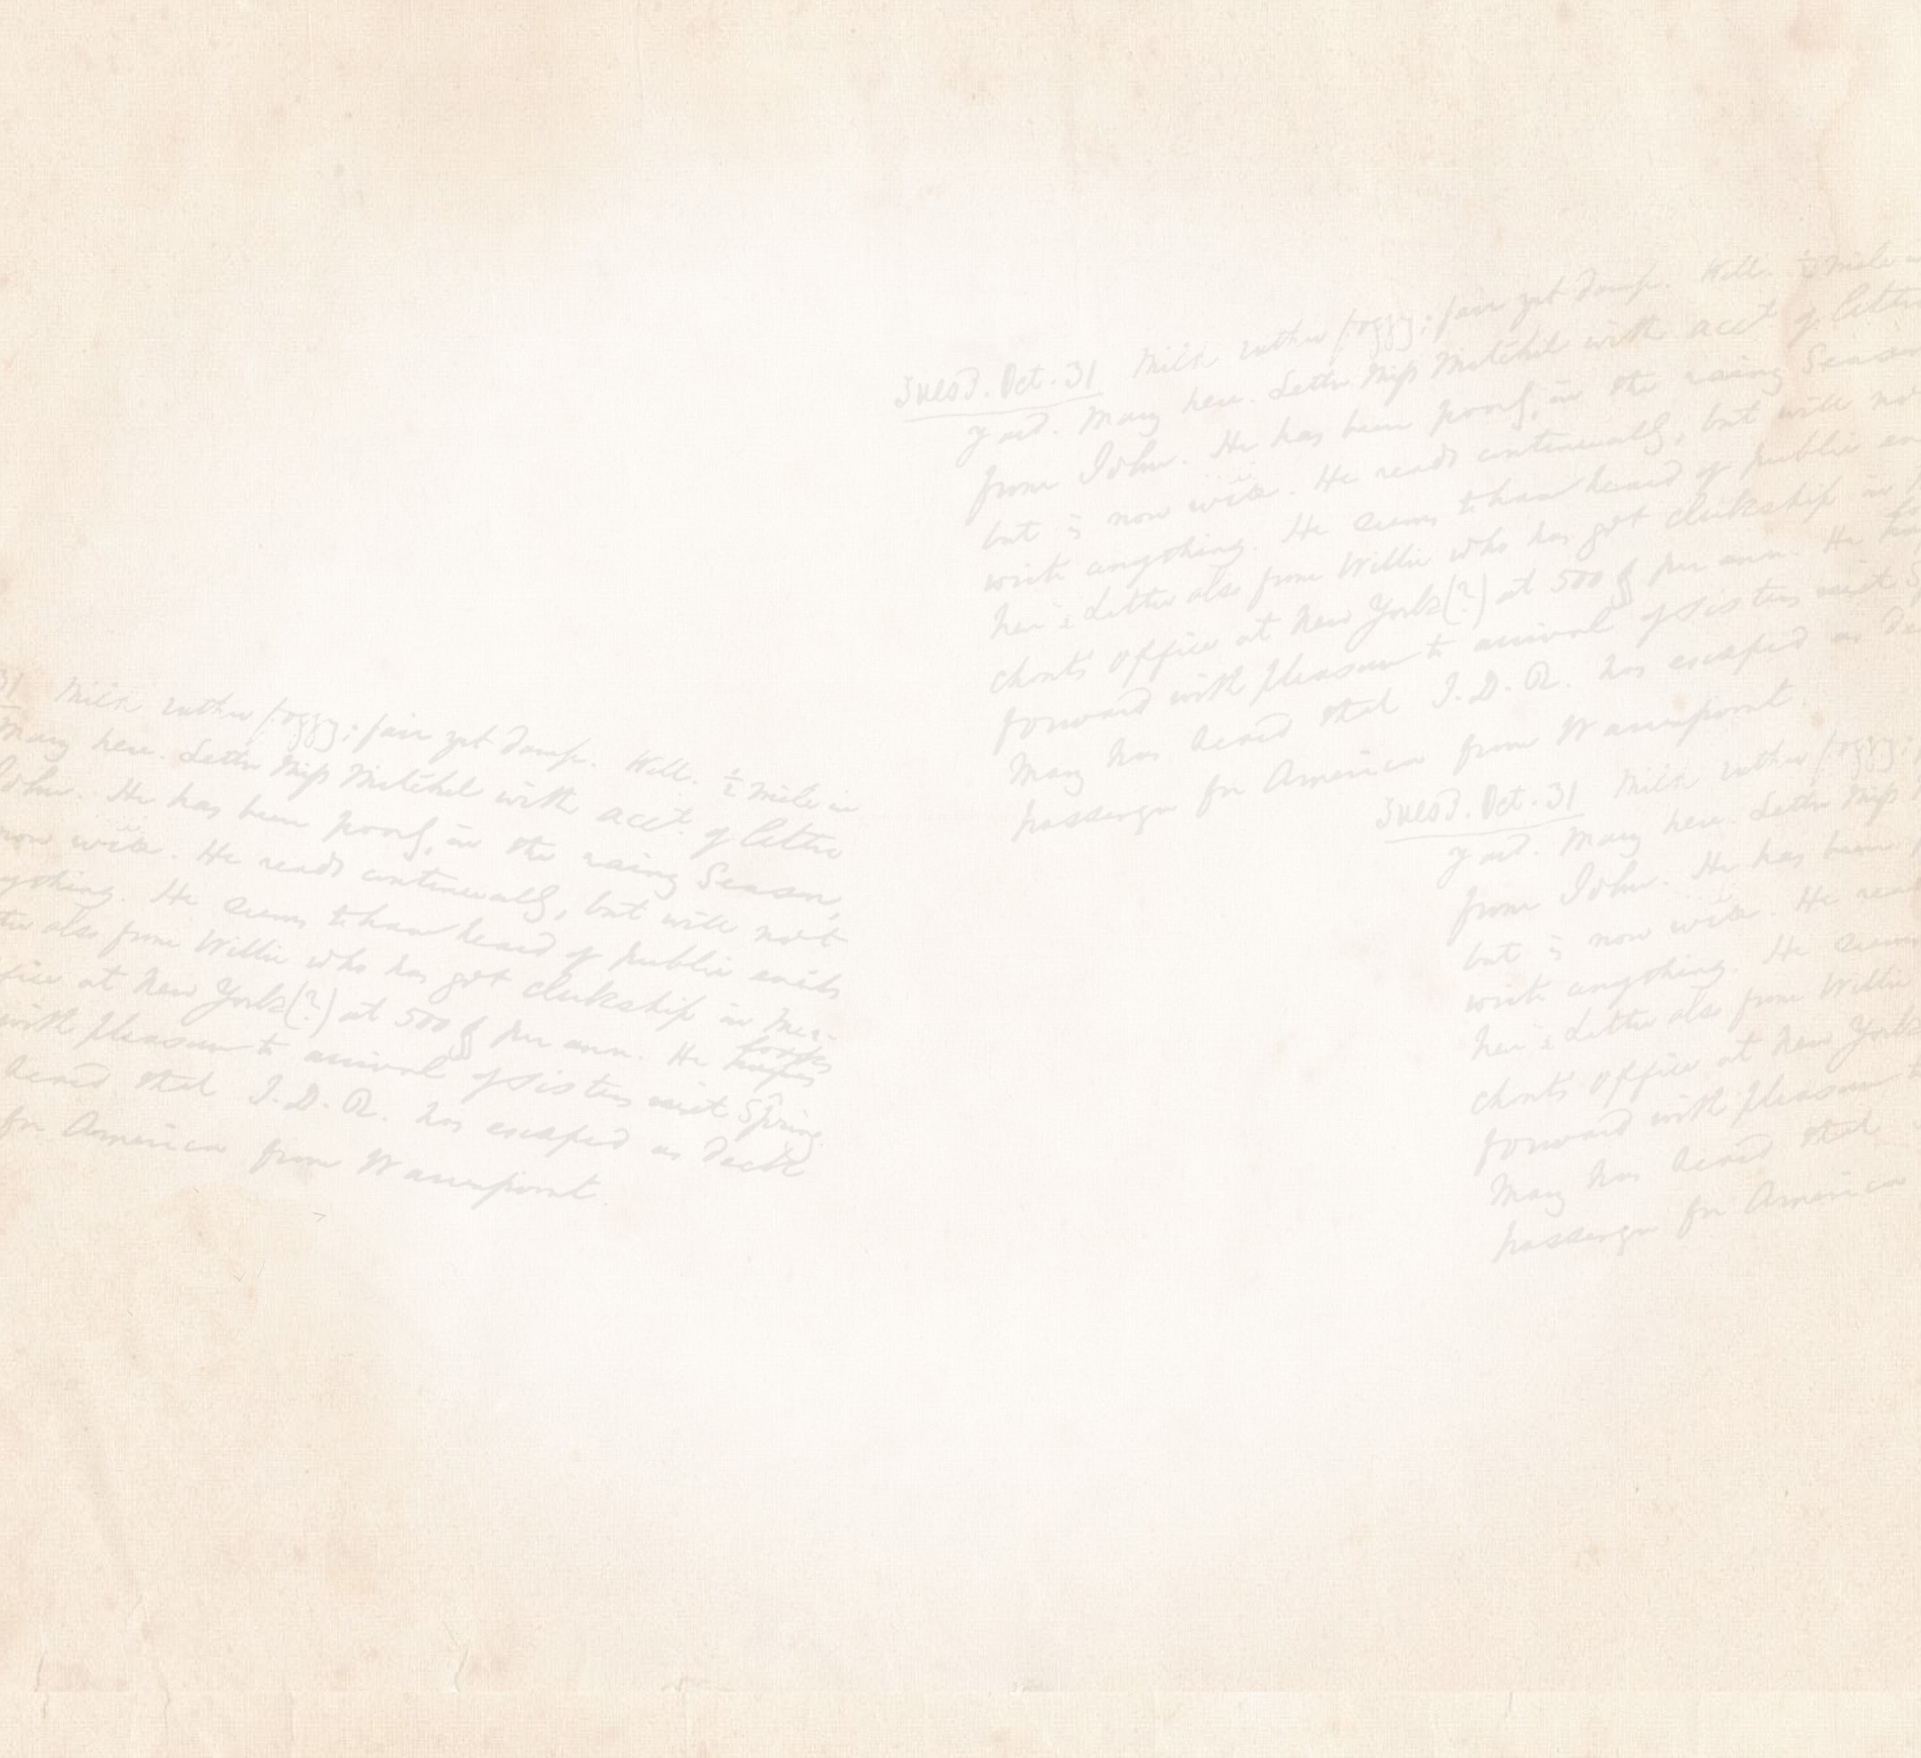 Tuesd. Oct. 31 Mild rather foggy; fair yet damp. Will. ½ mile
yard. Mary here. Lettr Miss Mitchel with acct. of lettr
from John. He has been poorly, in the rainy Season
but is now well. He reads continually, but will not
write anything. He seems to have heard of public
here. Letter also from Willie who has got clerkship in
chants office at New York(?) at 500 $ per ann. He
forward with pleasure to arrival of sisters next
May has heard that J.D.R. has escaped as
passenger for America from
31 Mild rather foggy; fair yet damp. Will. ½ mile in
Mary here. Lettr Miss Mitchel with acct. of lettr
John. He has been poorly, in the rainy Season,
now well. He reads continually, but will not
anything. He seems to have heard of public
also from Willie who has got clerkship in Mer-
office at New York(?) at 500 $ per ann. He looks
with pleasure to arrival of sisters next Spring.
heard that J.D.R. has escaped as deck
for America from
Tuesd. Oct. 31 Mild rather foggy;
yard. Mary here. Lettr Miss
from John. He has been
but is now well. He
write anything. He seems
here. Letter also from Willie
chants office at New York
forward with pleasure
May has heard that
passenger for America